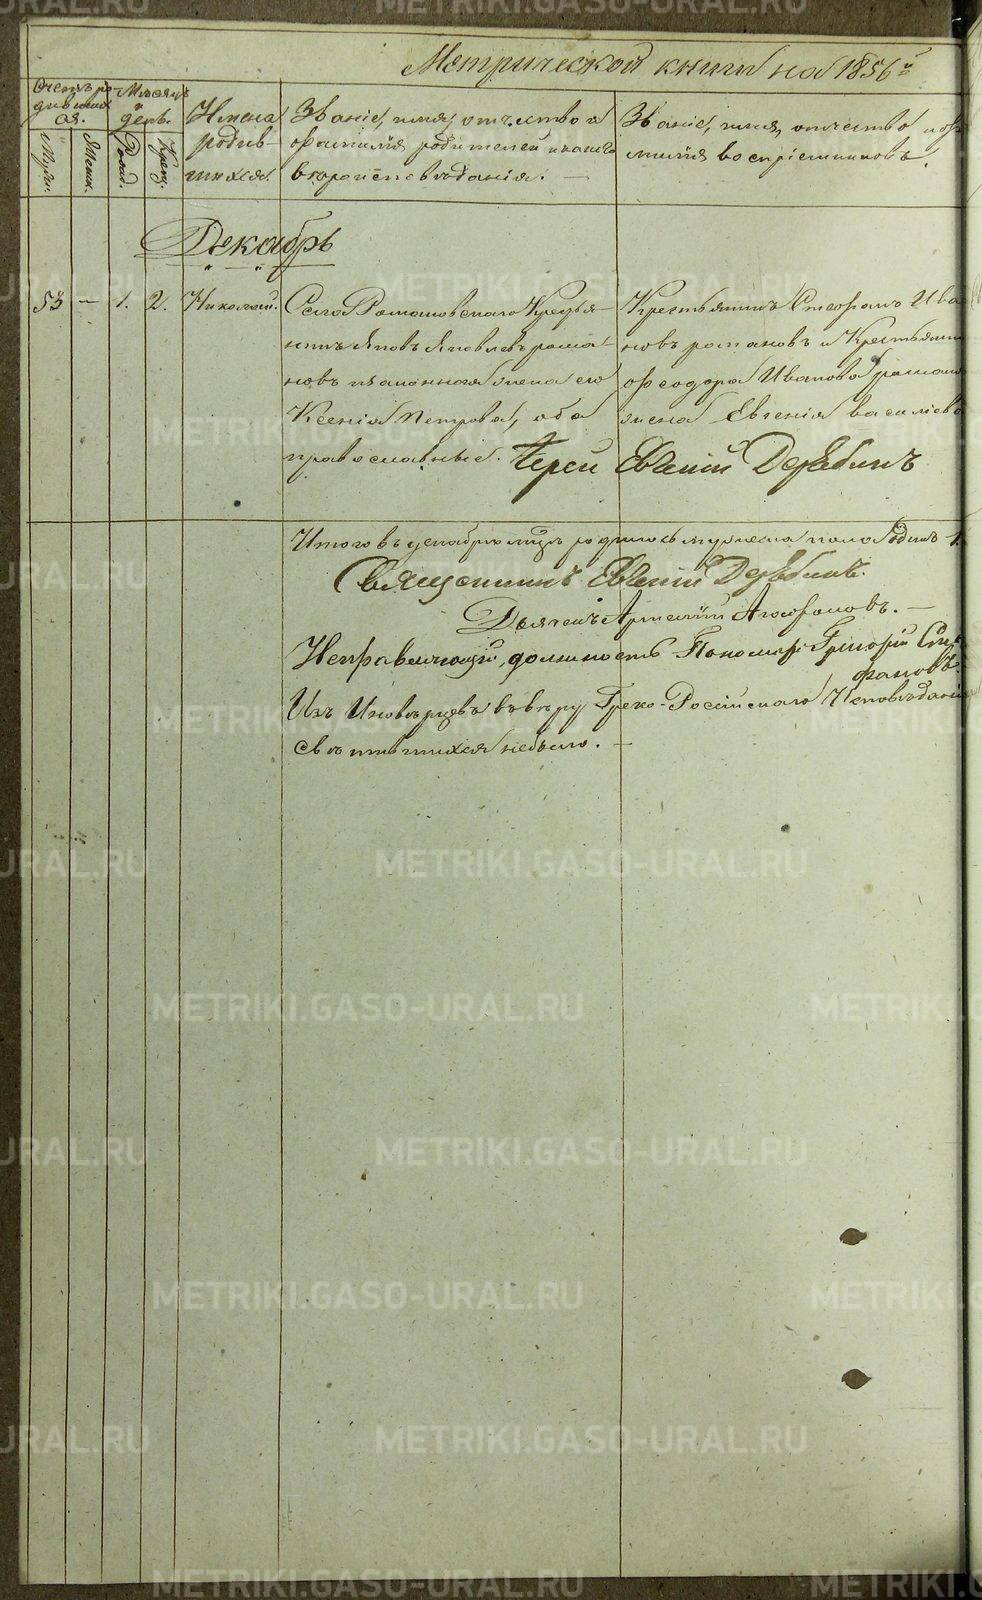 Метрической книги на 1856й
Счетъ ро-
дивших
ся.
Мѣсяцъ
и
день.
Имена
родив-
шихся.
Званіе, имя, отчество и
фамилія родителей и какого
вѣроисповѣданія. —
Званіе, имя, отчество и фа
милія воспріемниковъ.
Муж.
Женс.
Рожд.
Крещ.
Декабрь
53 — 1. 2. Николай.
Села Романовскаго Крестья-
нинъ Яковъ Яковлевъ рома-
новъ и законная жена его
Ксенія Петрова, оба
православные.
Крестьянинъ Стефанъ Ива
новъ романовъ и Крестьянин
Феодора Иванова роман
жена Евгенія василіева
Іерей Евгеній Дерябинъ
Итого въ декабрѣ мцѣ родилось мужеска пола Одинъ 1.
Священникъ Евгеній Дерябинъ.
Дьячекъ Агафоновъ. —
Исправляющій должность Пономаря Григорій Сте
фановъ.
Изъ Иновѣрцевъ въ вѣру Греко-Россійскаго Исповѣдані
небыло. —
METRIKI.GASO-URAL.RU